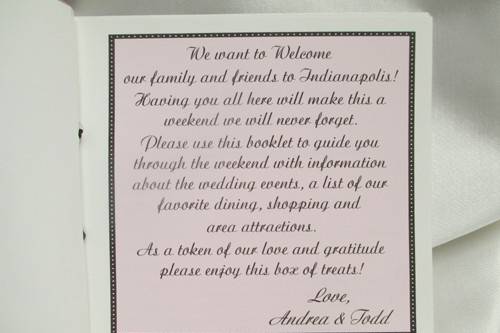 We want to Welcome
our family and friends to Indianapolis!
Having you all here will make this a
weekend we will never forget.
Please use this booklet to guide you
through the weekend with information
about the wedding events, a list of our
favorite dining, shopping and
area attractions.
As a token of our love and gratitude
please enjoy this box of treats!
Love,
Andrea & Todd